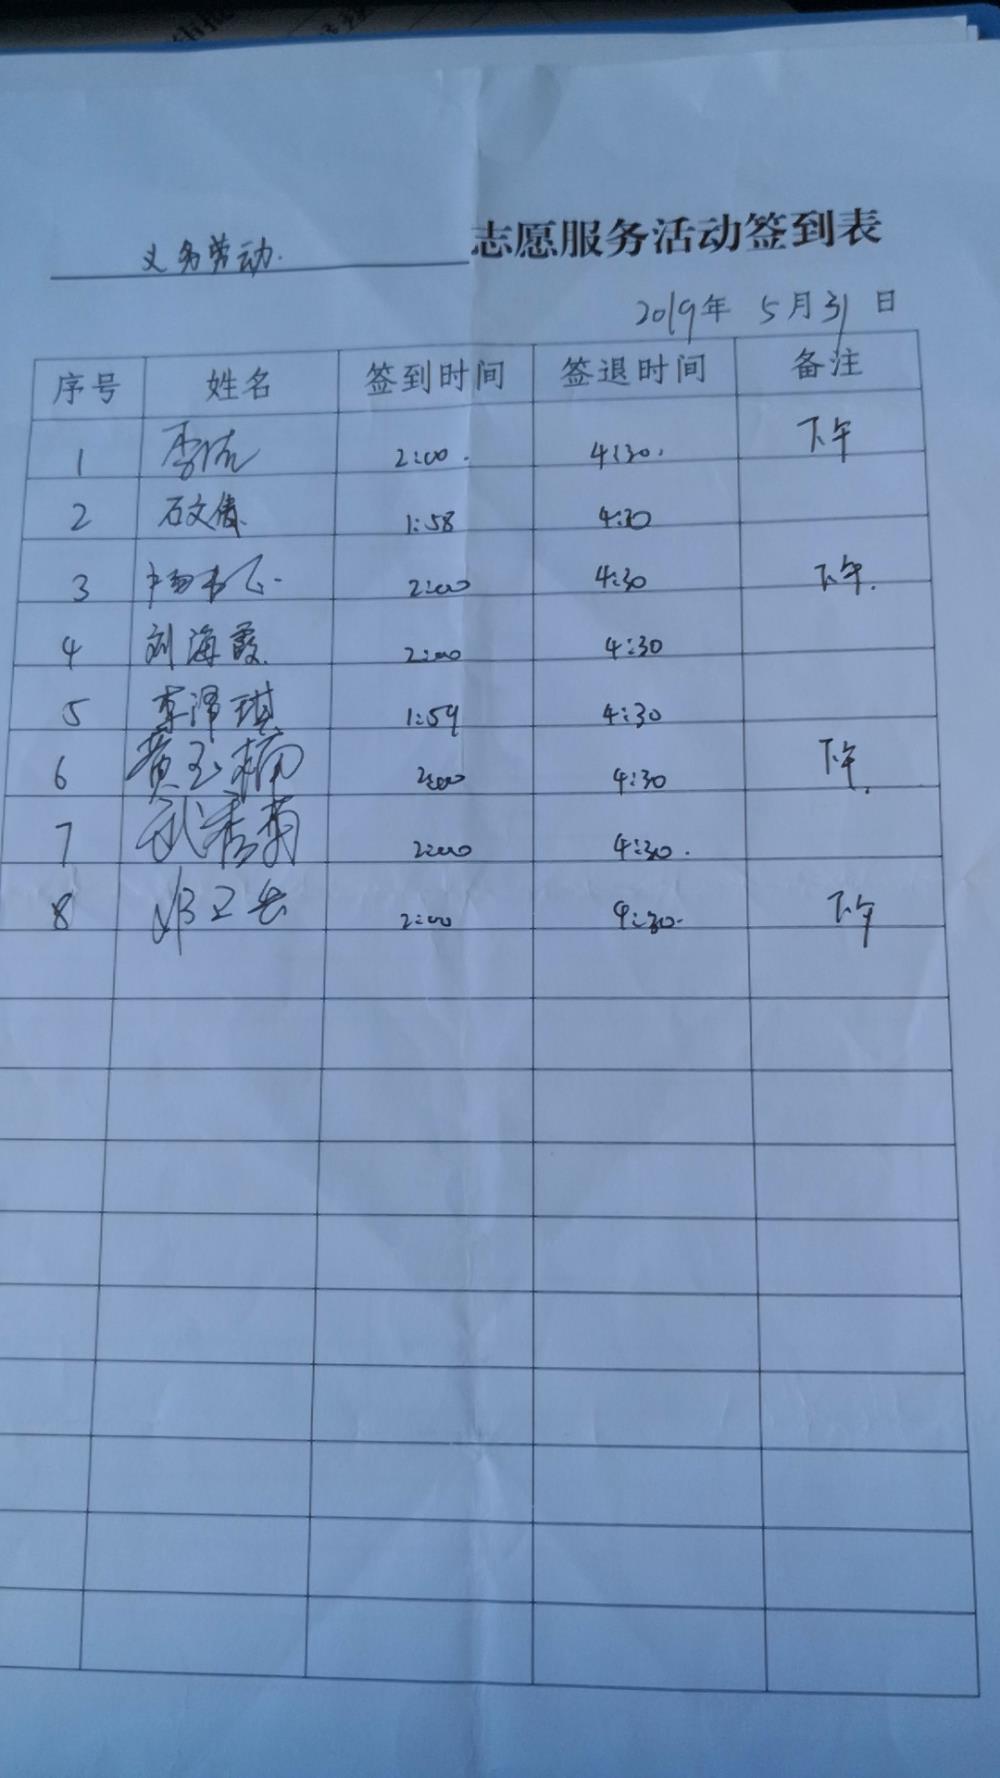 义务劳动. 志愿服务活动签到表
2019年 5月31日
序号 姓名 签到时间 签退时间 备注
1 2:00. 4:30. 下午
2 石文倩 1:58 4:30
3 2:00 4:30 下午.
4 刘海霞 2:00 4:30
5 李泽琪 1:59 4:30
6 黄玉楠 2:00 4:30 下午.
7 武秀菊 2:00 4:30.
8 2:00 4:30. 下午